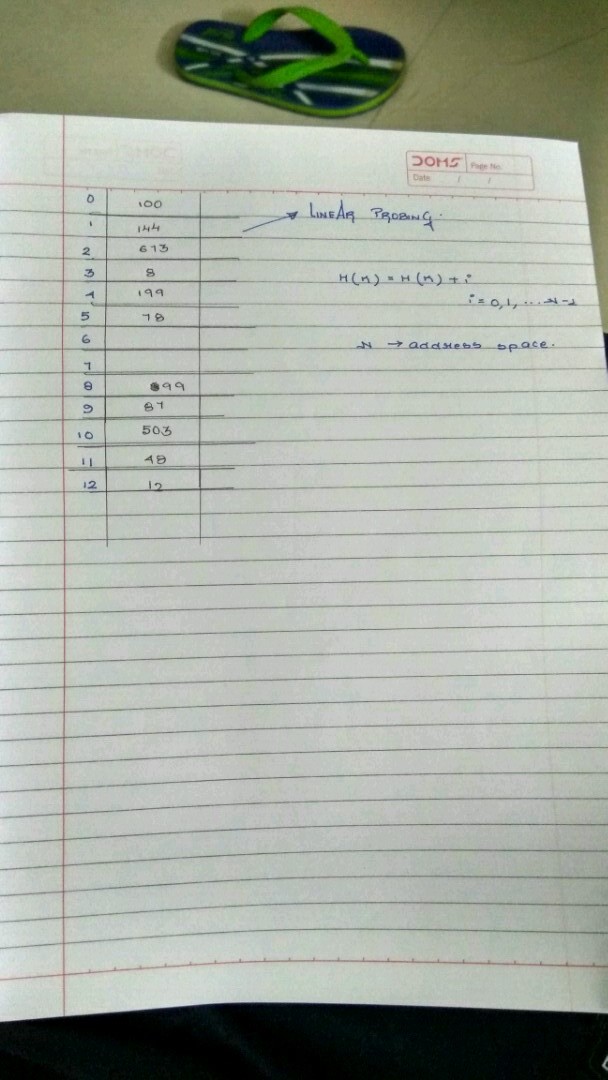 DOMS Page No.
Date / /
0 100
1 144
2 673
3 8
4 199
5 78
6
7
8 899
9 87
10 503
11 48
12 12
LINEAR PROBING.
H(n) = H(n) + i
i = 0, 1, ...
N → address space.